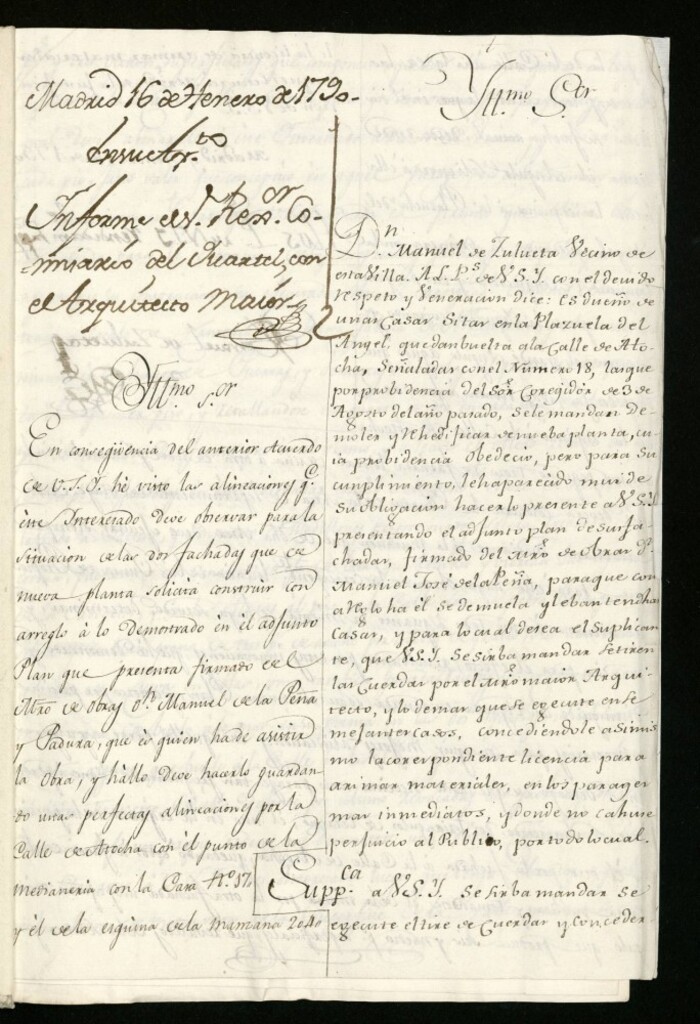 Madrid 16 de Henero de 1790.
En su Ay.to
Informe el S.r Rex.or Co-
misario del Quartel, con
el Arquitecto Maior,
Yll.mo S.or
En conseqüencia del anterior Acuerdo
de V.S.Y. hé visto las alineaciones q.e
este Interesado deve observar para la
situacion de las dos fachadas que de
nueva planta solicita construir con
arreglo á lo Demostrado en el adjunto
Plan que presenta firmado de el
Mrō de obras D.n Manuel de la Peña
y Padura, que es quien ha de asistir
la obra, y hállo deve hacerlo guardan
do unas perfectas alineaciones por la
Calle de Atocha con él punto de la
medianeria con la Casa N.o 17
y él de la esquina de la manzana 204
Yll.mo S.or
D.n Manuel de Zulueta Vecino de
esta Villa. A L. P.s de V.S.Y. con el devido
respeto y Veneracion dice: es dueño de
unas Casas Sitas en la Plazuela del
Angel, que dan buelta a la Calle de Ato-
cha, Señaladas con el Numero 18, las que
por probidencia del Sōr Coregidor de 3 de
Agosto del año pasado, se le mandan de-
moler y Rehedificar de nueba planta, cu-
ia probidencia obedecio, pero para su
cumplimiento, le ha parecido mui de
su obligacion hacerlo presente a V.S.Y
presentando el adjunto plan de sus fa-
chadas, firmado del Mrō de Obras D.n
Manuel José de la Peña, para que con
arreglo ha él se demuela y lebanten dhas
Casas, y para lo cual desea el Suplican
te, que V.S.Y. se sirba mandar se tiren
las Cuerdas por el Mrō maior Arqui-
tecto, y lo demas que se egecute en se
mejantes casos, concediendole asimis
mo la correspondiente licencia para
arimar materiales, en los parages
mas inmediatos, y donde no cause
perjuicio al Publico, por todo lo cual.
Supp.ca a V.S.Y. se sirba mandar se
egecute el tire de Cuerdas y conceder